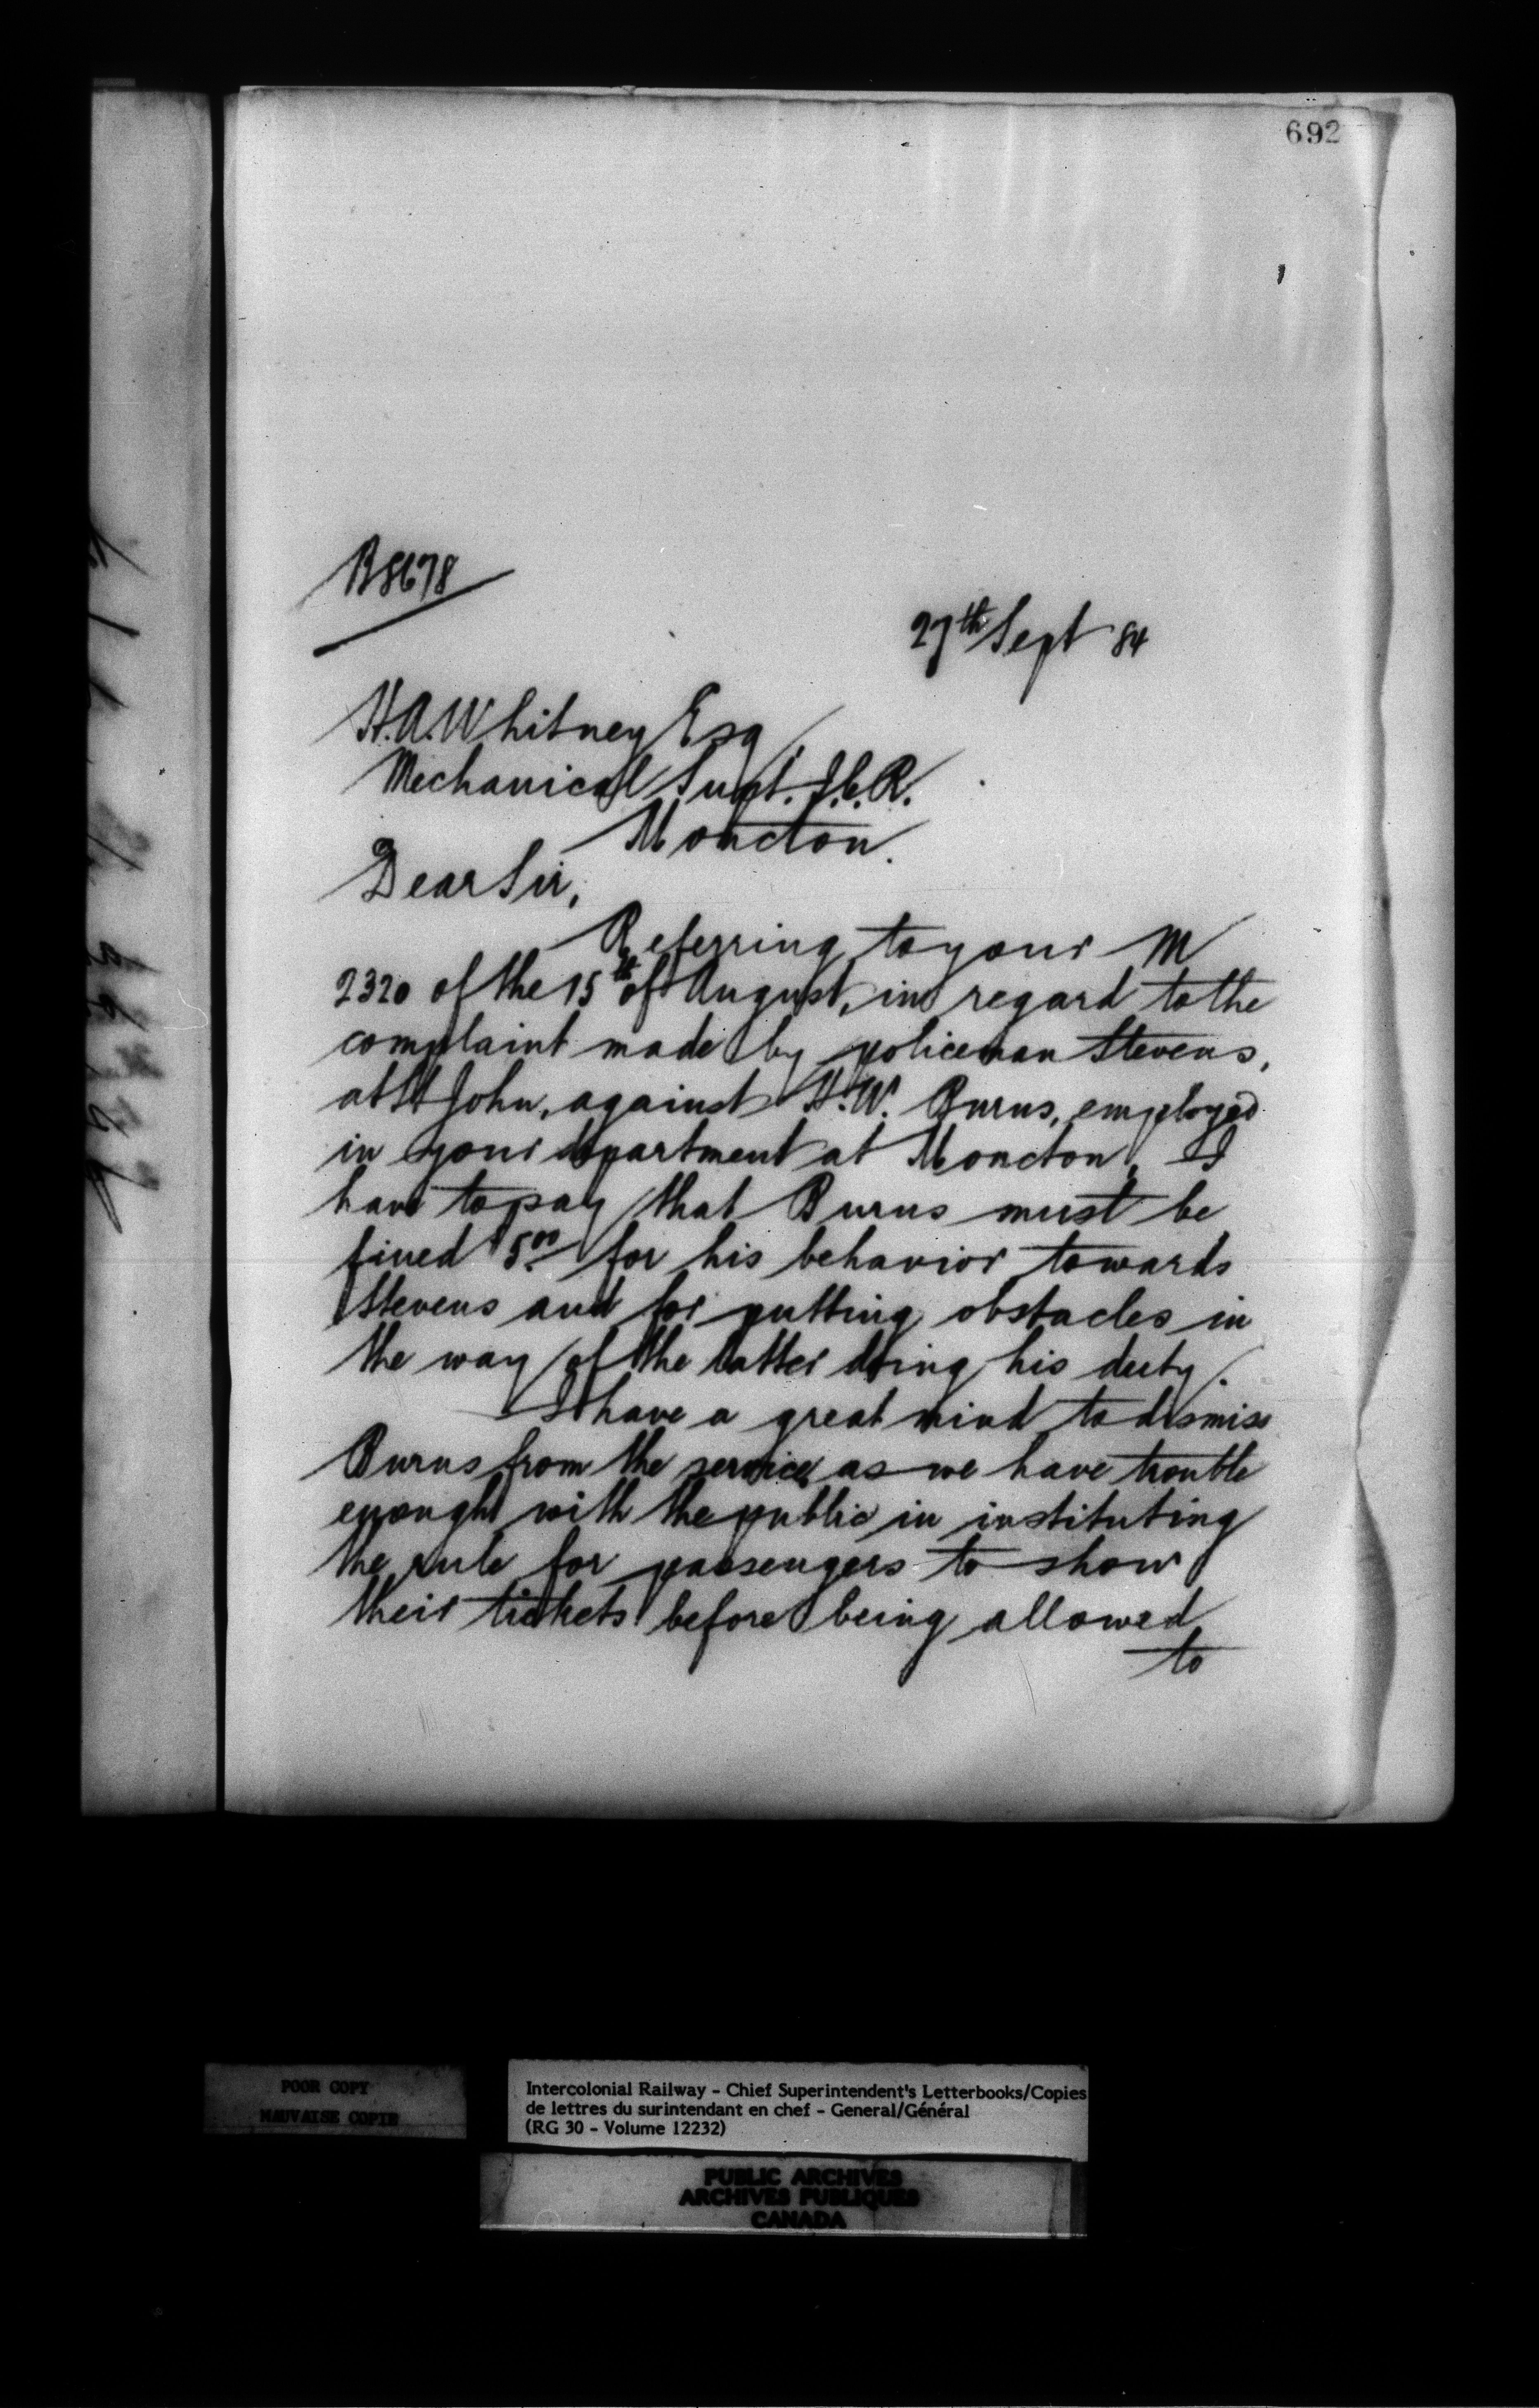 692
B8678
27th Sept 84
H.A. Whitney Esq
Mechanical Supt. I.C.R.
Moncton.
Dear Sir,
Referring to your M
2320 of the 15th of August, in regard to the
complaint made by policeman Stevens,
at St John, against H.W. Burns, employed
in your department at Moncton, I
have to say that Burns must be
fined $5.00 for his behavior towards
Stevens and for putting obstacles in
the way of the latter doing his duty.
I have a great mind to dismiss
Burns from the service as we have trouble
enough with the public in instituting
the rule for passengers to show
their tickets before being allowed
to
POOR COPY
MAUVAISE COPIE
Intercolonial Railway - Chief Superintendent's Letterbooks/Copies
de lettres du surintendant en chef - General/Général
(RG 30 - Volume 12232)
PUBLIC ARCHIVES
ARCHIVES PUBLIQUES
CANADA